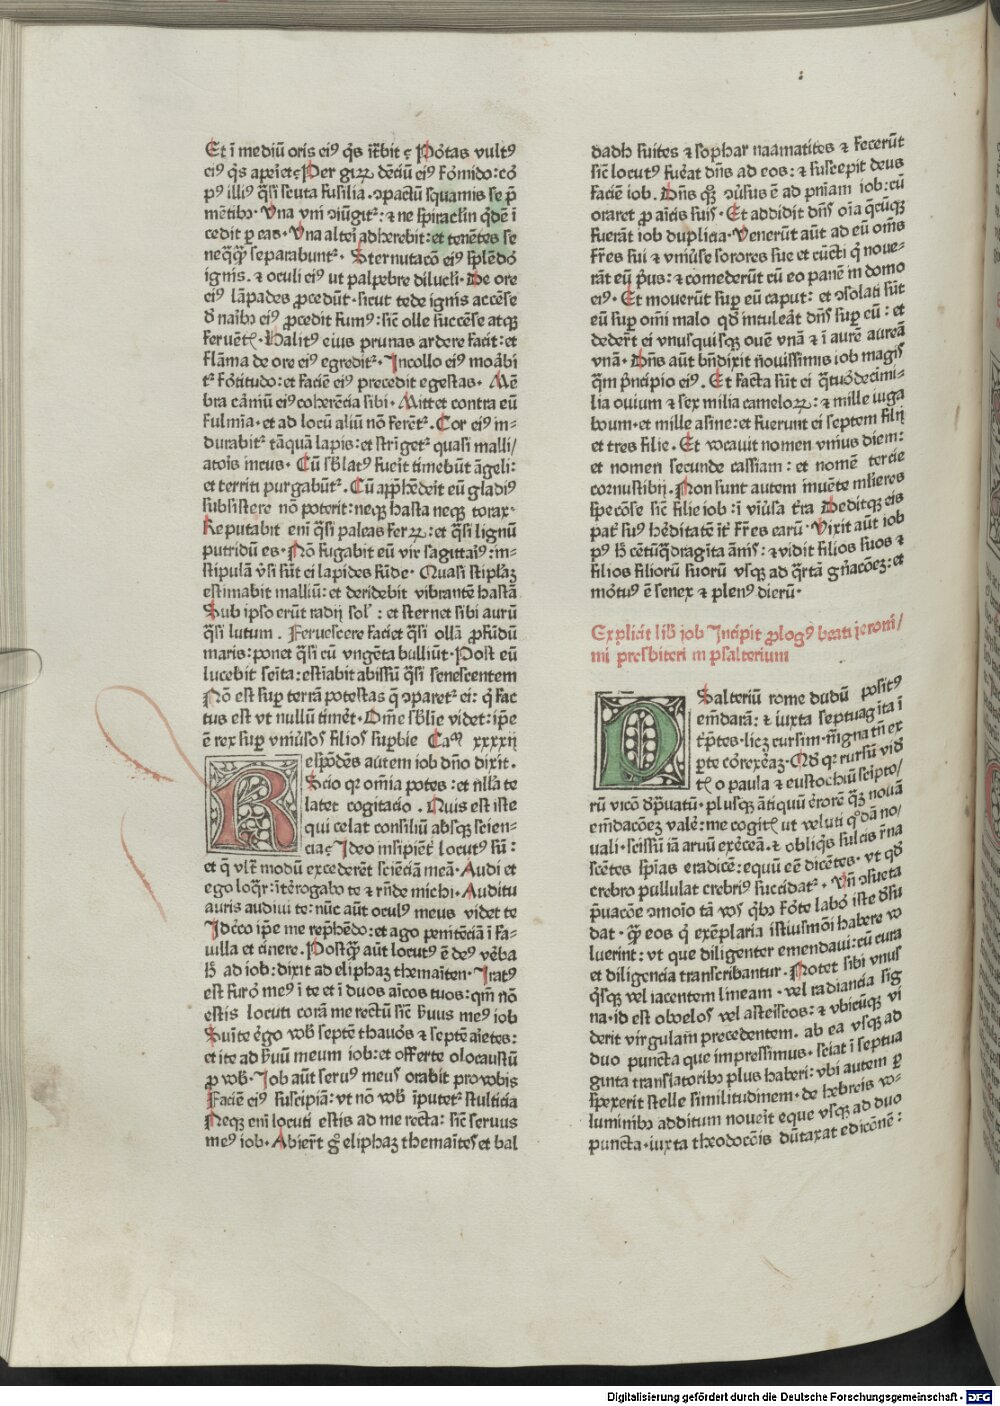 Et ī mediū oris eiꝰ q̄s ītͬbit ꝭ Pōtas vultꝰ
eiꝰ q̄s apeīet Per giꝝ dēciū eiꝰ formido: cō
pꝰ illiꝰ q̄si scuta fusilia ↄpactū squamis se p̄
mētibꝰ· Vna vni ↄiūgitᷣ: & ne spiraclm̄ q̄dē ī
cedit p eas· Vna alteī adherebit: et tenētes se
neq̄q̄ separabuntᷣ· Sternutacō eiꝰ splēdō
ignis· & oculi eiꝰ ut palpebre diluculi· De ore
eiꝰ lāpades ꝓcedūt· sicut tede ignis accēse
d̄ naibꝰ eiꝰ ꝓcedit fumꝰ: sic̄ olle succēse atqꝫ
ferventꝭ· Halitꝰ eius prunas ardere facit: et
flāma de ore eiꝰ egreditᷣ· In collo eiꝰ morabi
tᷣ fortitudo: et faciē eiꝰ precedit egestas· Mē
bra carniū eiꝰ coherēcia sibi· Mittet contra eū
fulmīa· et ad locū aliū nō ferētᷣ. Cor eiꝰ in⸗
durabitᷣ tāquā lapis: et strīgetᷣ quasi malli/
atoīs incus· Cū sb̄latꝰ fueīt timebūt āgeli:
et territi purgabūtᷣ. Cū app̄hēdeīt eū gladiꝰ
subsistere nō poterit: neqꝫ hasta neqꝫ torax·
Reputabit eni q̄si paleas ferꝝ: et q̄si lignū
putridū es· Nō fugabit eū vir sagittaīꝰ: in⸗
stipulā v̄si sūt ei lapides fūde· Quasi stiplaꝫ
estimabit malliū: et deridebit vibrantē hastā
Sub ipso erūt radij solꝭ: et sternet sibi aurū
q̄si lutum. Fervescere faciet q̄si ollā ꝓfūdū
maris: ponet q̄si cū vngēta bulliūt· Post eū
lucebit seīta: estīabit abissū q̄si senescentem
Nō est sup terrā potestas q̄ ↄparetᷣ ei: q̄ fac
tus est vt nullū timēt· Om̄e sb̄lie videt: ip̄e
ē rex sup vniūsos filios supbie Caᵐ xxxxij
Respōdēs autem iob dn̄o dixit.
Scio qꝛ om̄ia potes: et nl̄la te
latet cogitacio. Quis est iste
qui celat consiliū absqꝫ scien⸗
cia Ideo insipiētᷣ locutꝰ sū:
et q̄ vlt̄ modū excederēt sciēciā meā· Audi et
ego loq̄r: īterogabo te & rn̄de michi· Auditu
auris audivi te: nūc aūt oculꝰ meus videt te
Idcīco ip̄e me rep̄hēdo: et ago penitēciā ī fa⸗
uilla et cinere. Postq̄ aūt locutꝰ ē deꝰ v̄ba
h̄ ad iob: dixit ad eliphaꝫ themaīten· Iratꝰ
est furor meꝰ ī te et ī duos aīcos tuos: qm̄ nō
estis locuti corā me rectū sic̄ ẜuus meꝰ iob
Sumīte ergo vob̄ septē thauros & septē aīetes:
et ite ad ẜuū meum iob: et offerte olocaustū
ꝓ vob̄· Iob aūt servꝰ meus orabit pro vobis
Faciē eiꝰ suscipiā: vt nō vob̄ īputetᷣ stulticia
Neqꝫ enī locuti estis ad me recta: sic̄ seruus
meꝰ iob· Abierūt gͦ eliphaꝫ themaītes et bal
dadh suites & sophar naamatites & fecerūt
sic̄ locutꝰ fuēat dn̄s ad eos: & suscepit deus
faciē iob. Dn̄s qꝫ ↄūsus ē ad pn̄iam iob: cū
oraret ꝓ aīcis suis· Et addidit dn̄s oīa q̄cūqꝫ
fuerāt iob duplicia· Venerūt aūt ad eū om̄s
fr̄es sui & vniūse sorores sue et cūcti q̄ nove⸗
rāt eū p̄us: & comederūt cū eo panē in domo
eiꝰ· Et moverūt sup eū caput: et ↄsolati sūt
eū sup om̄i malo qd̄ intuleāt dn̄s sup eū: et
dederūt ei vnusquisqꝫ ouē vnā & ī aurē aureā
vnā· Dn̄s aūt bn̄dixit novissimis iob magis
q̄m p̄ncipio eiꝰ. Et facta sūt ei q̄tuordecīmi⸗
lia ovium & sex milia cameloꝝ: & mille iuga
boum· et mille asine: et fuerunt ei septem filij
et tres filie· Et vocavit nomen vniꝰ diem:
et nomen secunde cassiam: et nomē tercie
cornustibij· Non sunt autem invēte mlieres
specōse sic̄ filie iob: ī vīūsa tr̄a Deditqꝫ eis
pat̄ suꝰ hēditatē īt̄ fr̄es earū· Vixit aūt iob
pꝰ h̄ cētūq̄dragīta ānis: & vidit filios suos &
filios filiorū suorū vsqꝫ ad q̄rtā gn̄acōeꝫ: et
mortuꝰ ē senex & plenꝰ dierū·
Explicit lib̄ iob Incipit ꝓlogꝰ beati ieroni/
mi presbiteri in psalterium
Psalteriū rome dudū positꝰ
em̄darā: & iuxta septuagīta ī
t̄p̄tes· licꝫ cursim· m̄gna tn̄ ex
pte corexēaꝫ. Qd̄ qꝛ rursū vid̄
tꝭ o paula & eustochiū scipto⸗
rū vicō dp̄vatū· plusqꝫ ātiquū erorē q̄ꝫ novā
em̄dacōeꝫ valē: me cogitꝭ ut veluti qͦdā no/
uali· scissū iā aruū exēceā· & obliq̄s sulcis r̄na
scētes spīas eradicē: equū eē dicētes· vt qd̄
crebro pullulat crebriꝰ succidatᷣ. Vn̄ ↄsueta
p̄uacōe ↄmoīo tā vos qͥbꝰ forte labor iste d̄su
dat· q̄ eos qͥ exēplaria istiusmōi habere vo
luerint: vt que diligenter emendavi: cū cura
et diligencia transcribantur· Notet sibi vnus
qͥsqꝫ vel iacentem lineam· vel radiancia sig
na· id est obelos vel astericos: & vbicūqꝫ vi
derit virgulam precedentem· ab ea vsqꝫ ad
duo puncta que impressimus· sciat ī septua
ginta translatoribꝰ plus haberi: vbi autem p
spexerit stelle similitudinem· de hebreis vo⸗
luminibꝰ additum noverit eque vsqꝫ ad duo
puncta· iuxta theodocōis dūtaxat edicōnē:
Digitalisierung gefördert durch die Deutsche Forschungsgemeinschaft - DFG